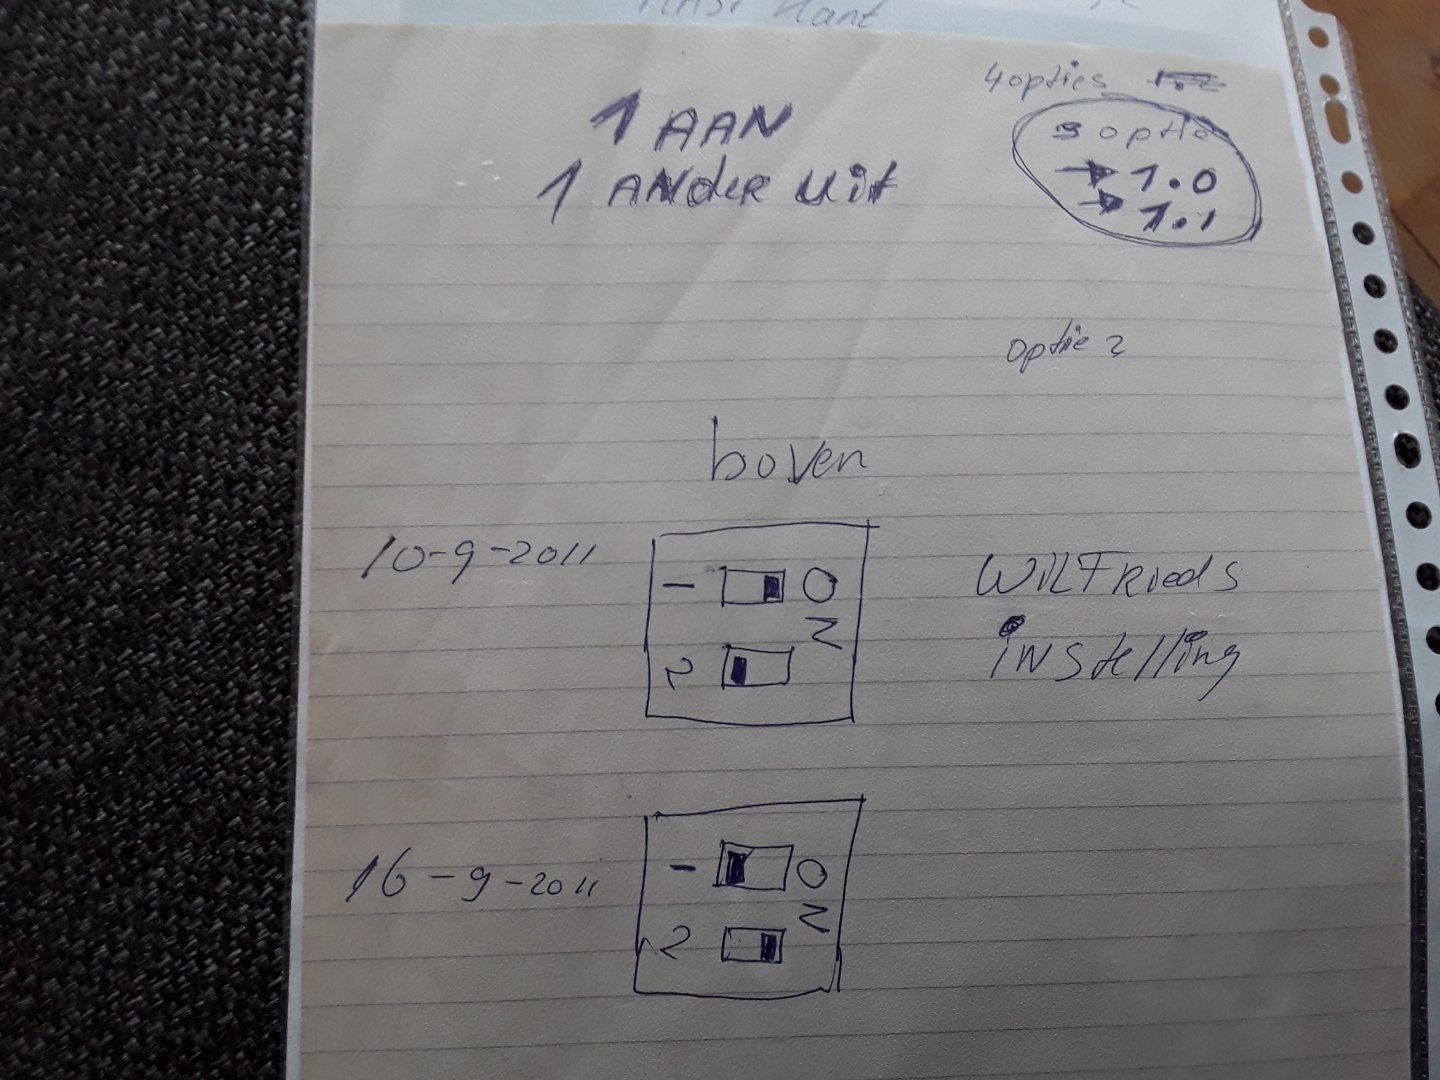 4 opties
1 AAN
1 ANder uit
3 optie
→ 1.0
→ 1.1
optie 2
boven
10-9-2011
1 O
N
2
WILFRieds
instelling
16-9-2011
1 O
N
2